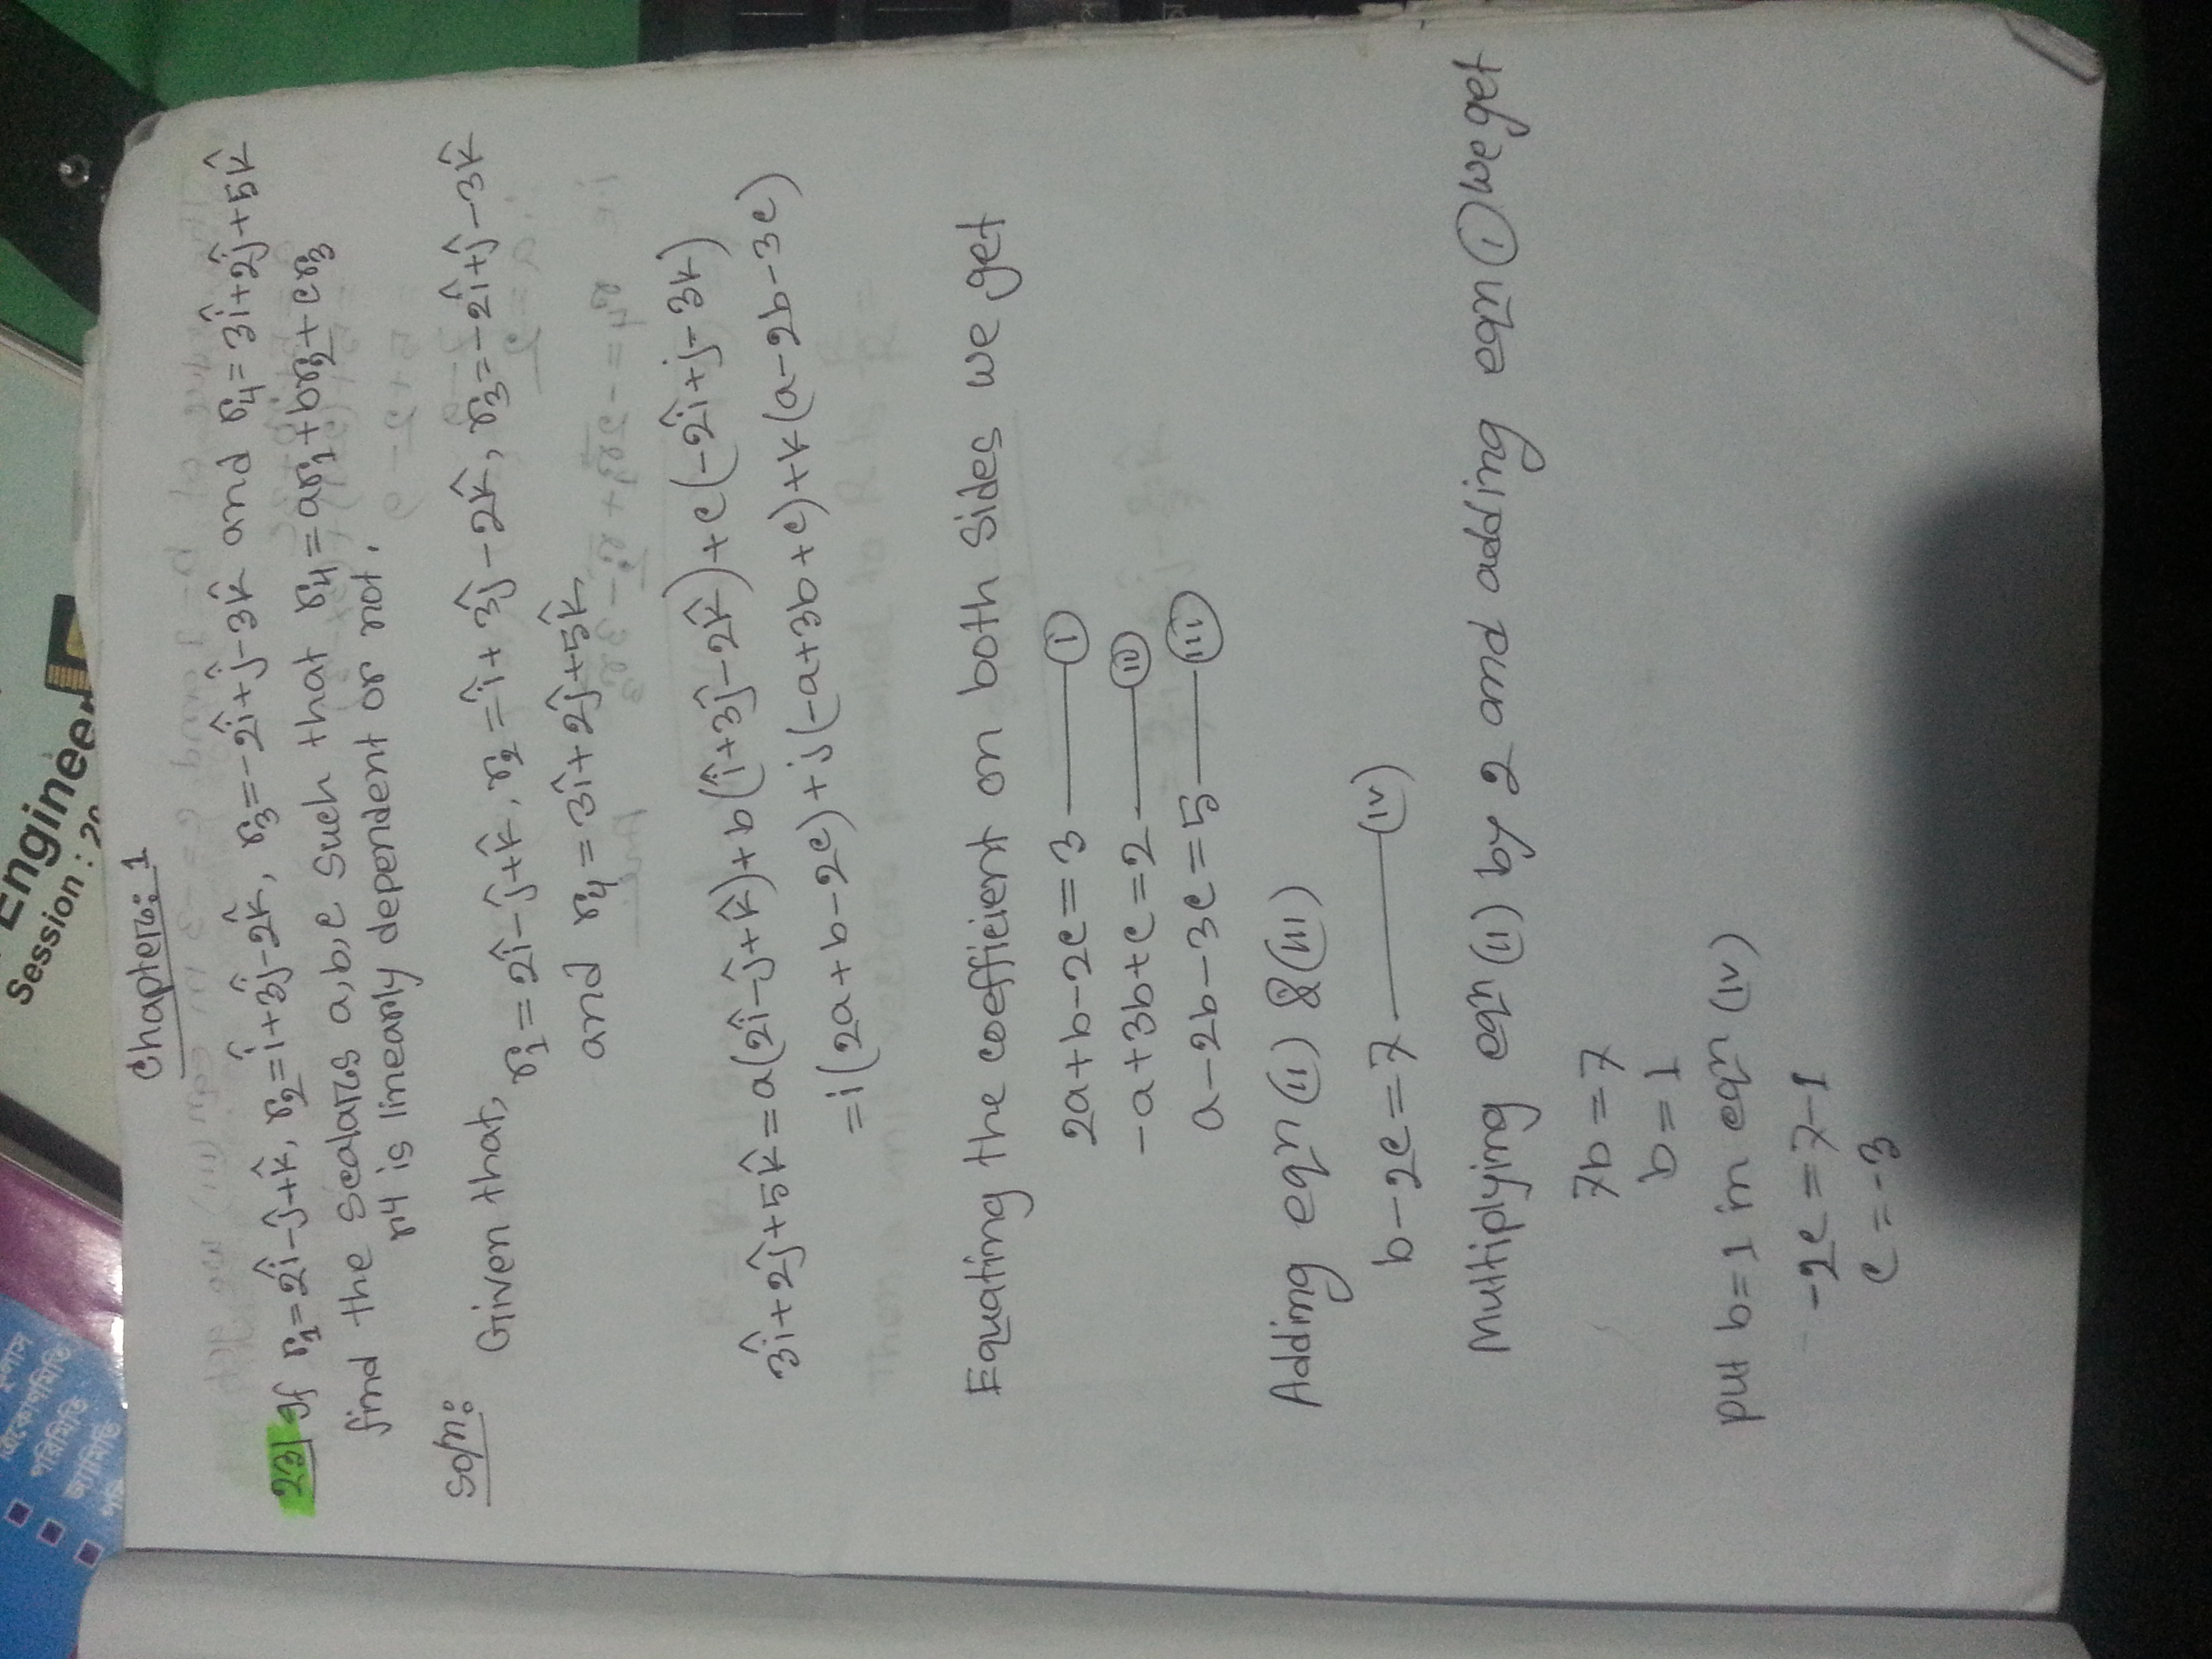 ত্রিকোণমিতি
পরিমিতি
জ্যামিতি
Engineer
Session : 20
Chapter: 1
23| If r₁=2î-ĵ+k̂, r₂=î+3ĵ-2k̂, r₃=-2î+ĵ-3k̂ and r₄=3î+2ĵ+5k̂
find the scalars a,b,c such that r₄=ar₁+br₂+cr₃
r4 is linearly dependent or not.
Soln:
Given that,
r₁=2î-ĵ+k̂, r₂=î+3ĵ-2k̂, r₃=-2î+ĵ-3k̂
and r₄=3î+2ĵ+5k̂
3î+2ĵ+5k̂=a(2î-ĵ+k̂)+b(î+3ĵ-2k̂)+c(-2î+j-3k)
=i(2a+b-2c)+j(-a+3b+c)+k(a-2b-3c)
Equating the coefficient on both sides we get
2a+b-2c=3 —— (i)
-a+3b+c=2 —— (ii)
a-2b-3c=5 —— (iii)
Adding eqn (ii) & (iii)
b-2c=7 —— (iv)
Multiplying eqn (ii) by 2 and adding eqn (i) we get
7b=7
b=1
put b=1 in eqn (iv)
-2c=7-1
c=-3